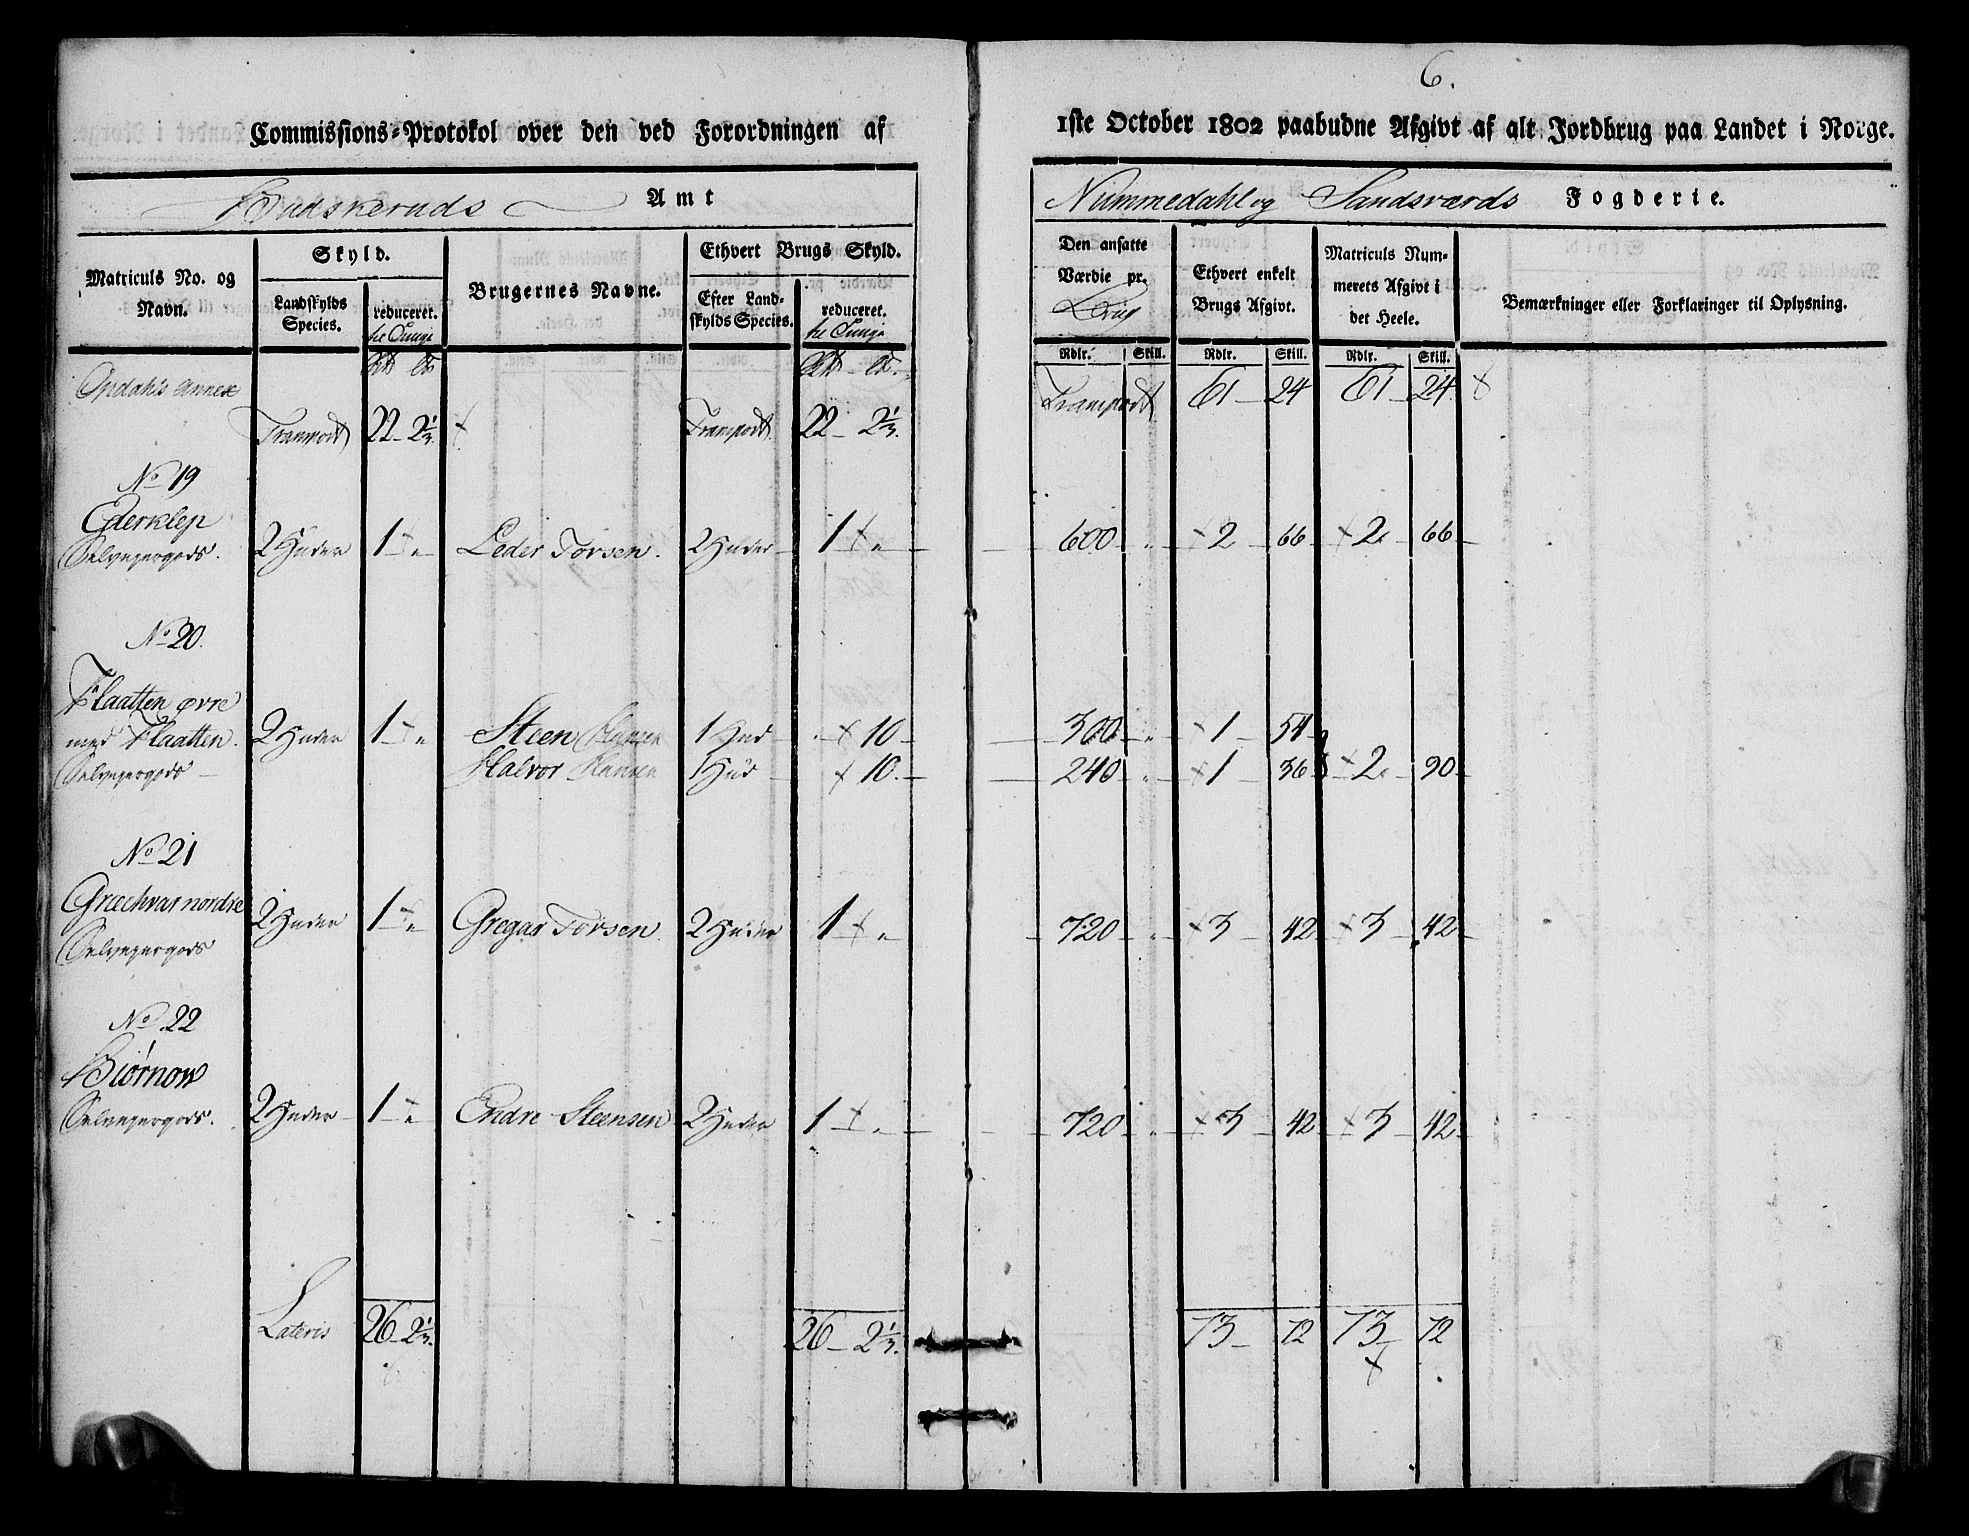 6.
Commissions-Protokol over den ved Forordningen af 1ste October 1802 paabudne Afgivt af alt Jordbrug paa Landet i Norge.
Budskeruds Amt Nummedahl og Sandsværds Fogderie.
Matriculs No. og Navn.
Skyld.
Landskylds Species.
reduceret. til Tunge
Brugernes Navne.
Ethvert Brugs Skyld.
Efter Landskylds Species.
reduceret. til Tunge
Den ansatte Værdie pr. Brug
Ethvert enkelt Brugs Afgivt.
Matriculs Nummerets Afgivt i det Heele.
Bemærkninger eller Forklaringer til Oplysning.
Rdlr. Skill. Rdlr. Skill. Rdlr. Skill.
Opdahls Annex
Transport 22 - 2 1/3. Transport 22 - 2 1/3. Transport 61 - 24 61 - 24
No 19
Ederklep
Selveyergods. 2 Huder 1 - " Peder Torsen. 2 Huder 1 " 600 " 2 66 2 66
No 20.
Flaatten øvre
med Flaatten. 2 Huder 1 - " Steen Hansen 1 Hud 10 300 " 1 54
Selveyergods Halvor Hansen 1 Hud 10 240 " 1 36 2 90
No 21
Græchvar nordre 2 Huder 1 - " Gregar Torsen. 2 Huder 1 " 720 " 3 42 3 42
Selveyergods
No 22
Biørnow
Selveyergods. 2 Huder 1 - " Endre Steensen 2 Huder 1 " 720 " 3 42 3 42
Lateris 26 - 2 1/3. 26 - 2 1/3. 73 - 72 73 - 72